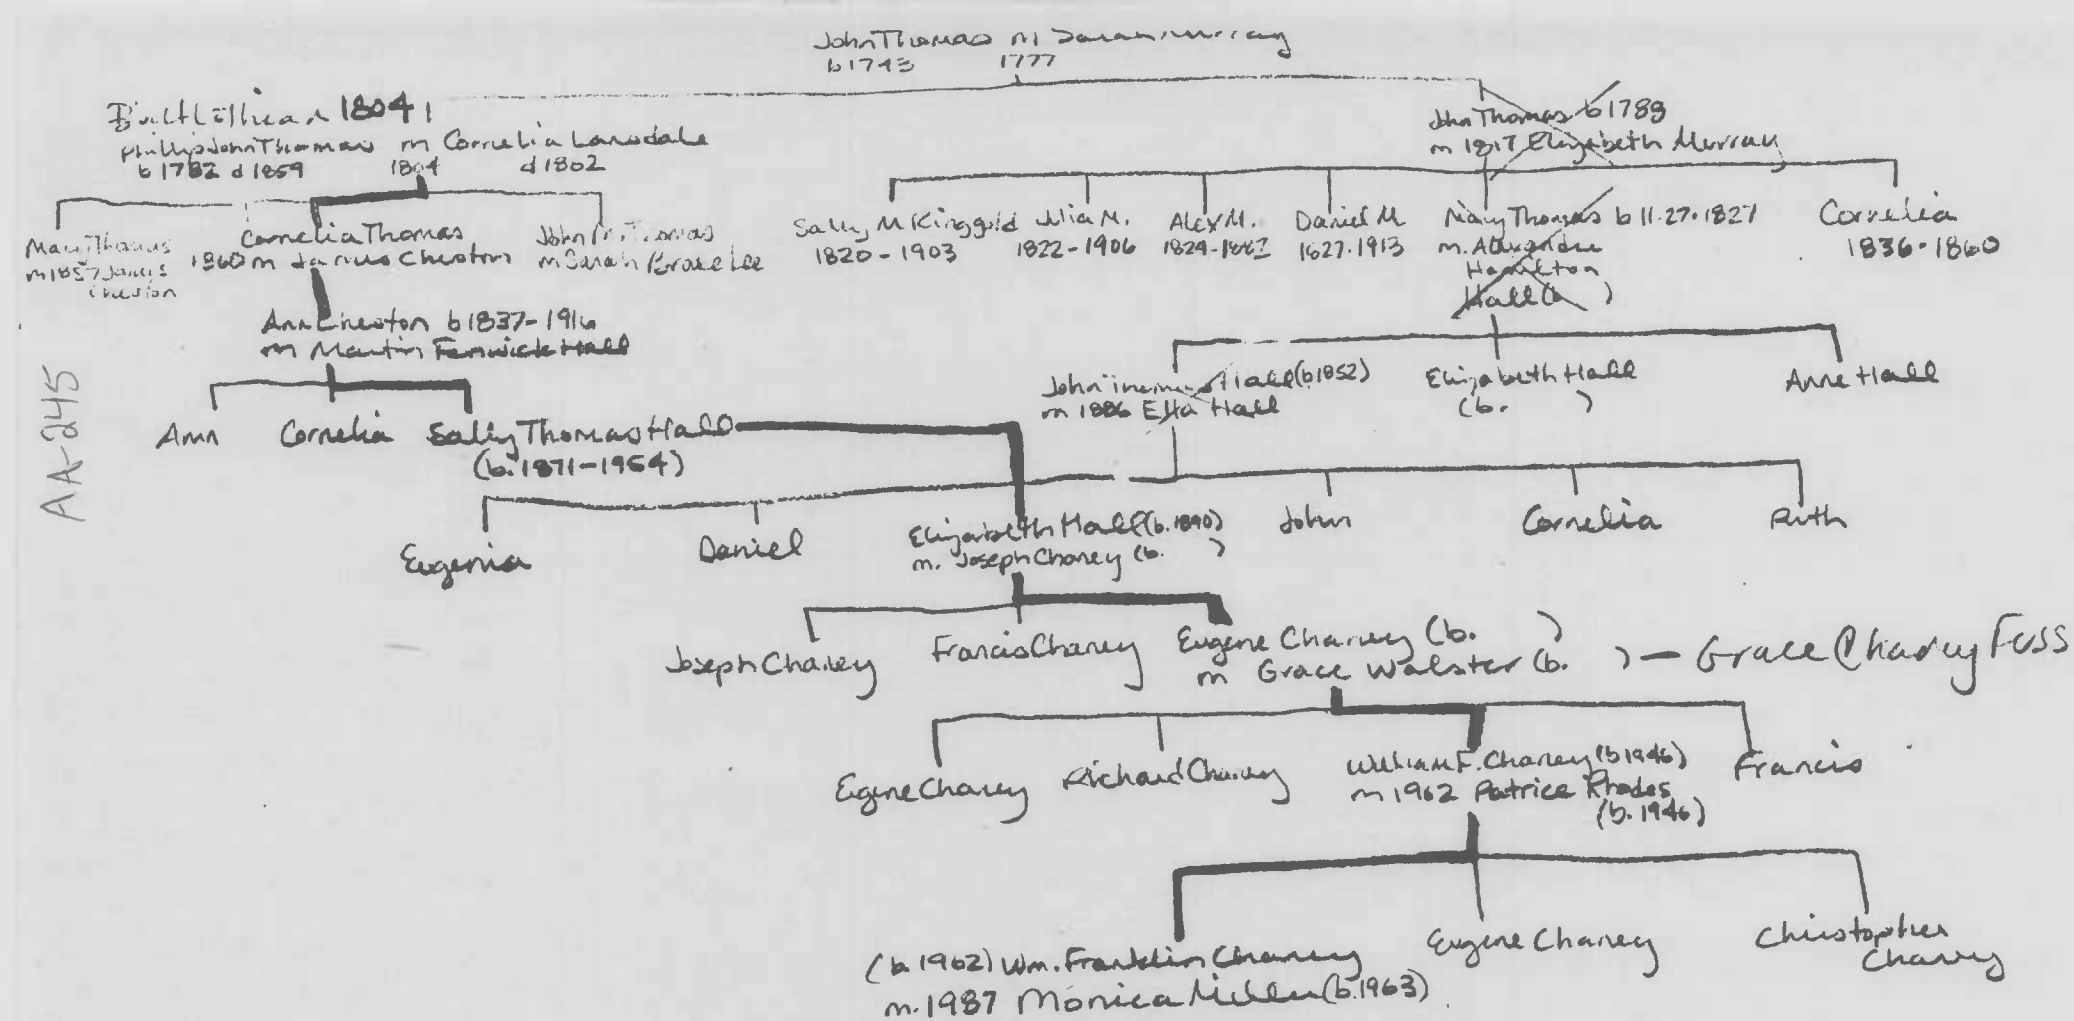 John Thomas m Sarah Murray
b 1743 1777
Built Lothian 1804
Phillip John Thomas m Cornelia Lansdale
b 1782 d 1859 1804 d 1802
John Thomas b 1788
m 1817 Elizabeth Murray
Mary Thomas
m 1857 James
Cheston
Cornelia Thomas
1860 m James Cheston
John M. Thomas
m Sarah Lee
Sally M Ringgold
1820 - 1903
Julia M.
1822 - 1906
Alex M.
Daniel M
1827-1913
Mary Thomas b 11.27.1827
m. Alexander
Hamilton
Hall (b )
Cornelia
1836-1860
Ann Cheston b 1837-1916
m Martin Fenwick Hall
John Thomas Hall (b1852)
m 1886 Ella Hall
Elizabeth Hall
(b. )
Anne Hall
Ann
Cornelia
Sally Thomas Hall
(b. 1871-1954)
AA-245
Eugenia
Daniel
Elizabeth Hall (b. 1890)
m. Joseph Chaney (b. )
John
Cornelia
Ruth
Joseph Chaney
Francis Chaney
Eugene Chaney (b. )
m Grace Walster (b. ) — Grace Chaney Fuss
Eugene Chaney
Richard Chaney
William F. Chaney (b 1946)
m 1962 Patrice Rhodes
(b. 1946)
Francis
(b. 1962) Wm. Franklin Chaney
m. 1987 Monica Miller (b. 1963)
Eugene Chaney
Christopher
Chaney